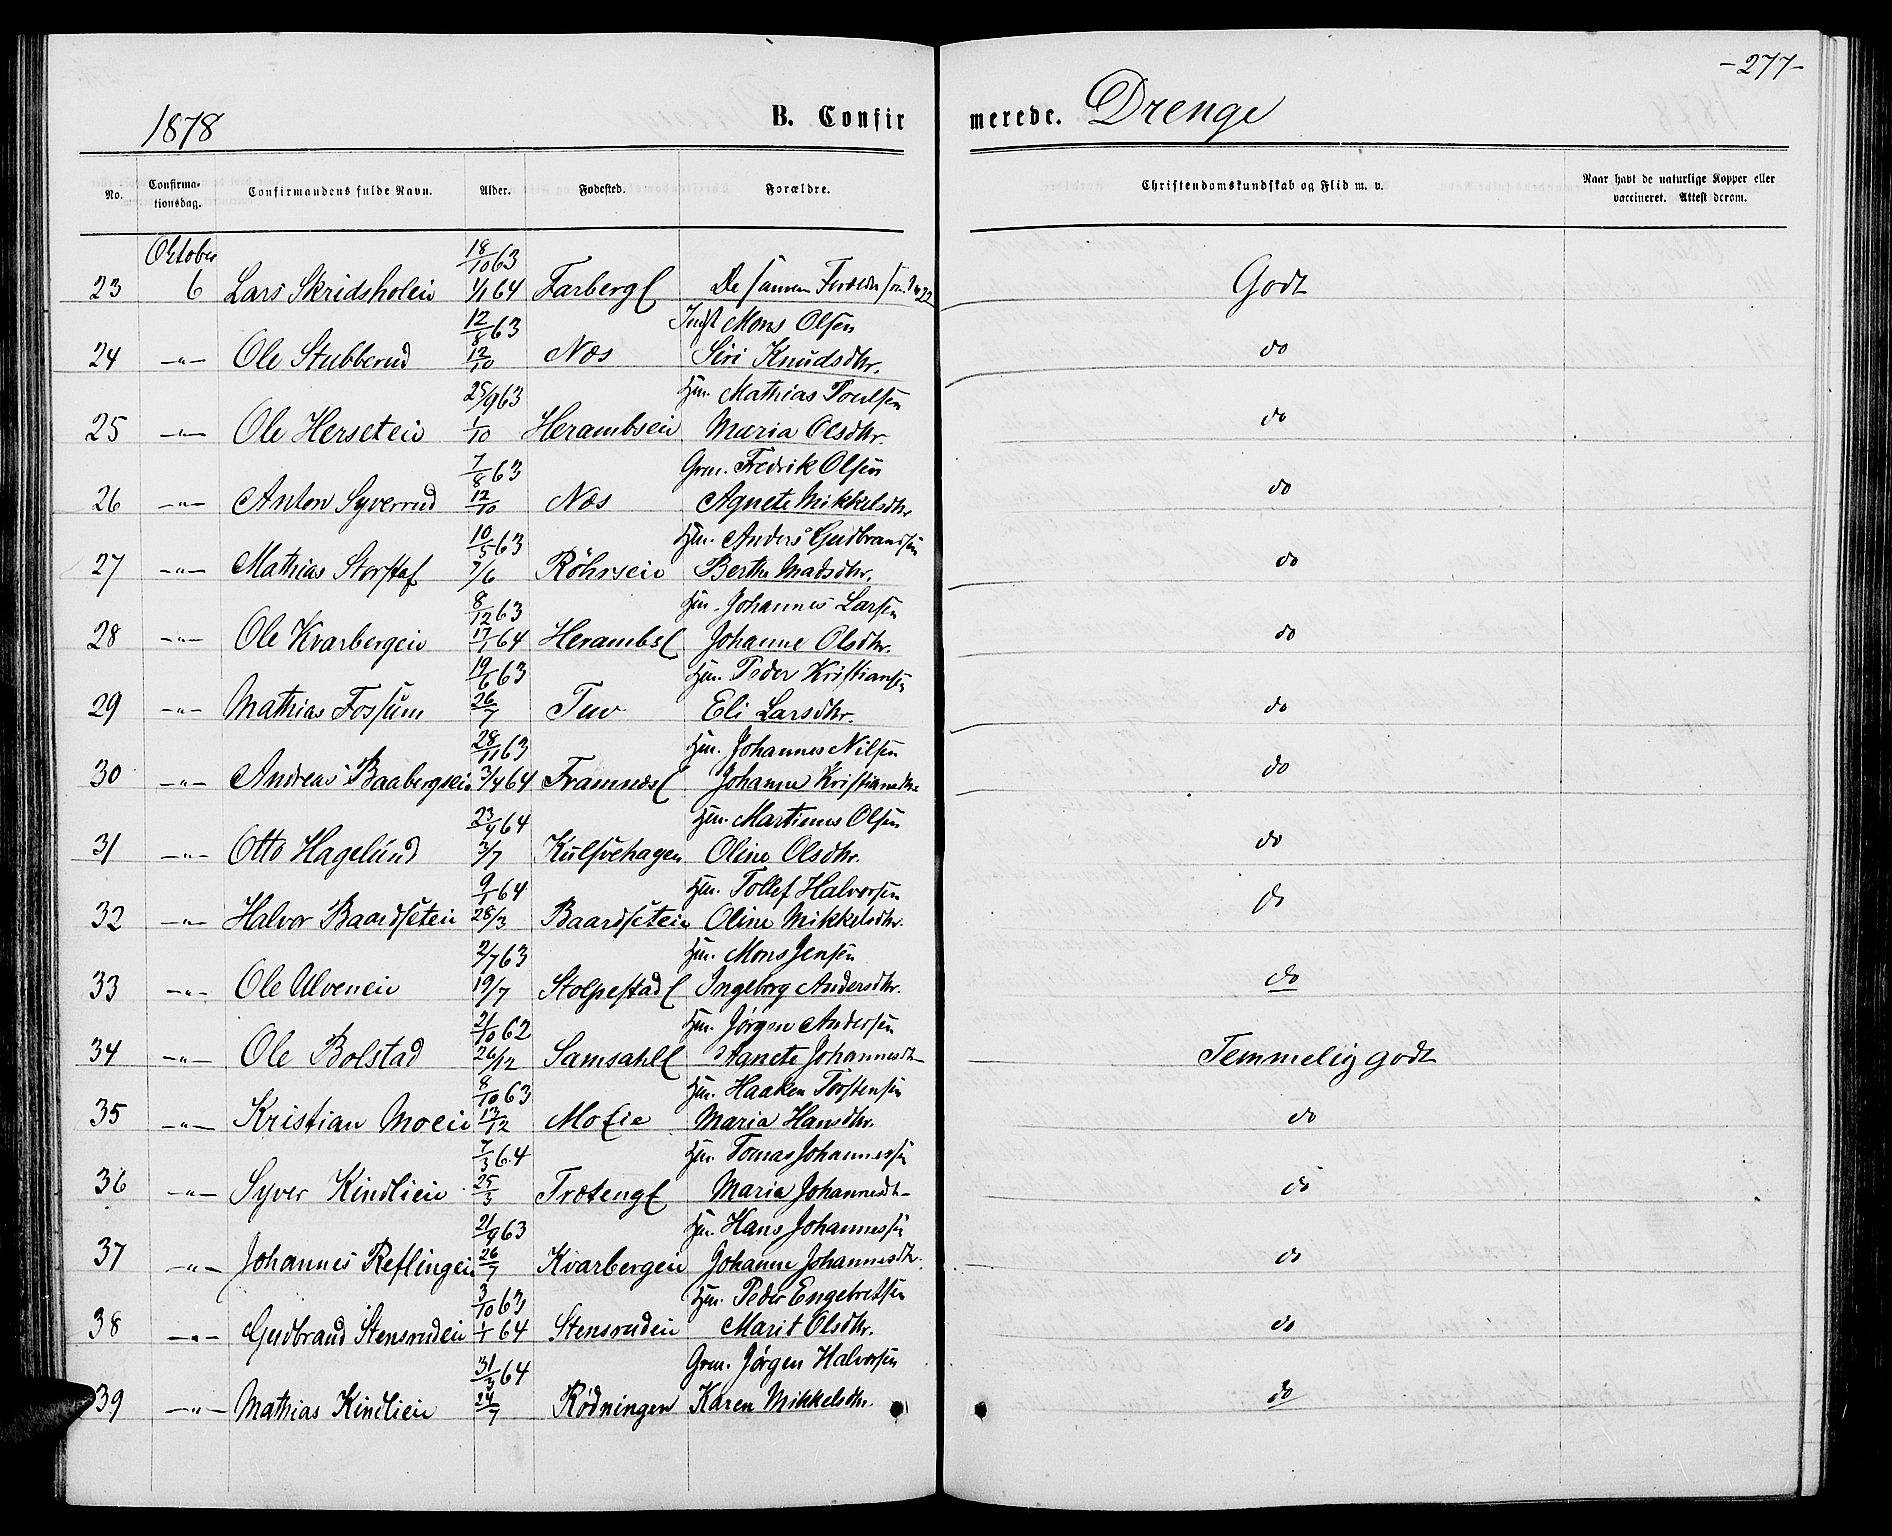 -277-
1878
B. Confirmerede. Drenge
No. Confirmationsdag. Confirmandens fulde Navn. Alder. Fødested. Forældre. Christendomskundskab og Flid m. v. Naar havt de naturlige Kopper eller vaccineret. Attest derom.
October 18/10 63
23 6 Lars Skridsholen 4/1 64 Farberg De samme Forældre som No 22 Godt
12/8 63 Indst Mons Olsen
24 -"- Ole Stubberud 12/10 Næs Siri Knudsdtr. do
25/9 63 Hm. Mathias Poulsen
25 -"- Ole Herseteie 1/10 Herambseie Maria Olsdtr. do
7/8 63 Grm. Fredrik Olsen
26 -"- Anton Syverrud 12/10 Næs Agnete Mikkelsdtr do
10/5 63 Hm. Anders Gudbrandsen
27 -"- Mathias Storstaf 7/6 Röhrseie Berthe Madsdtr. do
8/12 63 Hm. Johannes Larsen
28 -"- Ole Kvarbergeie 17/1 64 Herambs Johanne Olsdtr. do
19/6 63 Hm. Peder Kristiansen
29 -"- Mathias Fossum 26/7 Tuv Eli Larsdtr. do
28/11 63 Hm. Johannes Nilsen
30 -"- Andreas Baabergseie 3/4 64 Framnæs Johanne Kristiansdtr do
23/4 64 Hm. Martinus Olsen
31 -"- Otto Hagelund 3/7 Kulsvehagen Oline Olsdtr. do
9/1 64 Hm. Tollef Halvorsen
32 -"- Halvor Baardseteie 28/3 Baardseteie Oline Mikkelsdtr. do
2/7 63 Hm. Mons Jensen
33 -"- Ole Ulveneie 19/7 Stolpestad Ingeborg Andersdtr. do
21/10 62 Hm. Jørgen Andersen
34 -"- Ole Bolstad 26/12 Samsahl Agnete Johannesdtr Temmelig godt
8/10 63 Hm. Haaken Torstensen
35 -"- Kristian Moeie 13/12 Moeie Maria Hansdtr. do
7/3 64 Hm. Tomas Johannessen
36 -"- Syver Kindlieie 25/3 Træteng Maria Johannesdtr do
21/9 63 Hm. Hans Johannessen
37 -"- Johannes Reflingeie 26/7 Kvarbergeie Johanne Johannesdtr. do
3/10 63 Hm. Peder Engebretsen
38 -"- Gudbrand Stensrudeie 1/1 64 Stensrudeie Marit Olsdtr. do
31/3 64 Grm. Jørgen Halvorsen
39 -"- Mathias Kindlieie 24/7 Rødningen Karen Mikkelsdtr. do